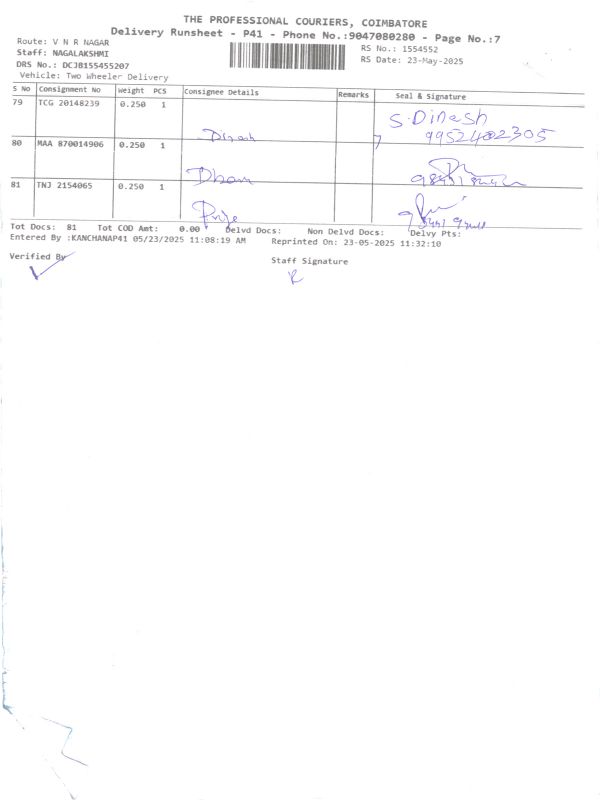 THE PROFESSIONAL COURIERS, COIMBATORE
Delivery Runsheet - P41 - Phone No.:9047080280 - Page No.:7
Route: V N R NAGAR
RS No.: 1554552
Staff: NAGALAKSHMI
RS Date: 23-May-2025
DRS No.: DCJB155455207
Vehicle: Two Wheeler Delivery
S No Consignment No Weight PCS Consignee Details Remarks Seal & Signature
79 TCG 20148239 0.250 1 Dinash S. Dinash
9952482305
80 MAA 870014906 0.250 1 Dham
81 TNJ 2154065 0.250 1 Priya
Tot Docs: 81 Tot COD Amt: 0.00 Delvd Docs: Non Delvd Docs: Delvy Pts:
Entered By :KANCHANAP41 05/23/2025 11:08:19 AM Reprinted On: 23-05-2025 11:32:10
Verified By
Staff Signature